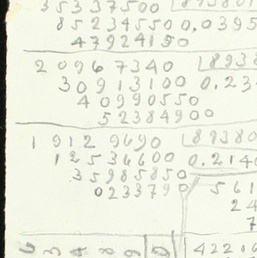 35337500
85234550 0,0395
47924150
20967340 8938
30913100 0.23
40990550
52384900
19129690 89380
12536600 0.214
35985850
0233790 561
24
7
42206